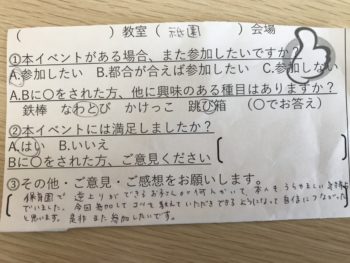 ( )教室( 祇園 )会場
①本イベントがある場合、また参加したいですか?
A.参加したい B.都合が合えば参加したい C.参加しない
A.Bに○をされた方、他に興味のある種目はありますか?
鉄棒 なわとび かけっこ 跳び箱 (○でお答え)
②本イベントには満足しましたか?
A.はい B.いいえ
Bに○をされた方、ご意見ください
③その他・ご意見・ご感想をお願いします。
保育園で 逆上りができるお子さんが何人かいて、本人もうらやましい気持ち
でいました。今回参加してコツを教えていただき できるようになって自信につながった
と思います。是非また参加したいです。